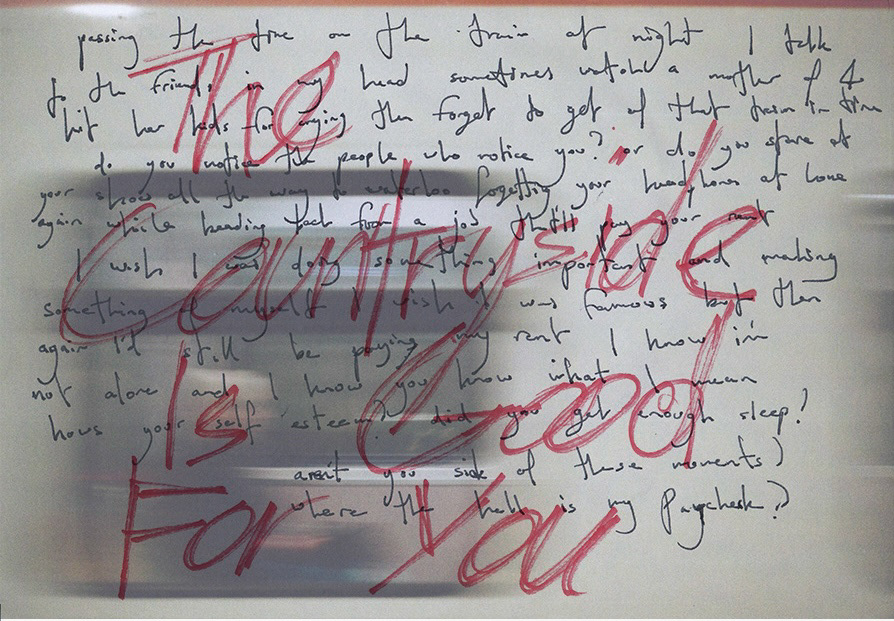 passing the time on the train at night I talk
to the friends in my head sometimes watch a mother of 4
hit her kids for crying then forget to get of that train in time
do you notice the people who notice you? or do you stare at
your shoes all the way to waterloo forgetting your headphones at home
again while heading back from a job that'll pay your rent
I wish I was doing something important and making
something of myself I wish I was famous but then
again I'd still be paying my rent I know im
not alone and I know you know what I mean
hows your self esteem? did you get enough sleep?
arent you sick of these moments?
where the hell is my Paycheck?
The
Countryside
Is Good
For You